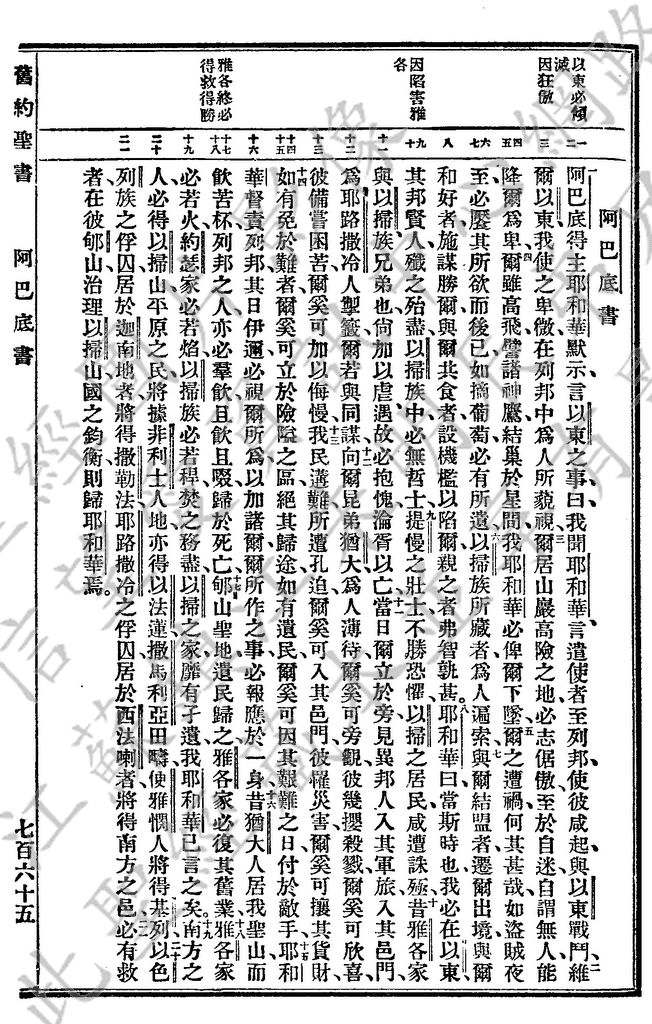 以東必傾滅
因狂傲
因陷害雅各
雅各終必
得救得勝
一二
三
四五
六七
八
九十
十一
十二
十三
十四十五
十六
十七十八
十九
二十
二一
阿巴底書
阿巴底得主耶和華默示言以東之事曰我聞耶和華言遣使者至列邦使彼咸起與以東戰鬥維
爾以東我使之卑微在列邦中爲人所藐視爾居山巖高險之地必志倨傲至於自迷自謂無人能
降爾爲卑爾雖高飛譬諸神鷹結巢於星間我耶和華必俾爾下墜爾之遭禍何其甚哉如盜賊夜
至必饜其所欲而後已如摘葡萄必有所遺以掃族所藏者爲人遍索與爾結盟者遷爾出境與爾
和好者施謀勝爾與爾共食者設機檻以陷爾親之者弗智孰甚耶和華曰當斯時也我必在以東
其邦賢人殲之殆盡以掃族中必無哲士提慢之壯士不勝恐懼以掃之居民咸遭誅殛昔雅各家
與以掃族兄弟也尙加以虐遇故必抱愧淪胥以亡當日爾立於旁見異邦人入其軍旅入其邑門
爲耶路撒冷人掣籤爾若與同謀向爾昆弟猶大爲人薄待爾奚可旁觀彼幾攖殺戮爾奚可欣喜
彼備嘗困苦爾奚可加以侮慢我民遘難所遭孔迫爾奚可入其邑門彼罹災害爾奚可攘其貨財
如有免於難者爾奚可立於險隘之區絕其歸途如有遺民爾奚可因其艱難之日付於敵手耶和
華督責列邦其日伊邇必視爾所爲以加諸爾爾所作之事必報應於一身昔猶大人居我聖山而
飲苦杯列邦之人亦必羣飲且飲且啜歸於死亡郇山聖地遺民歸之雅各家必復其舊業雅各家
必若火約瑟家必若焰以掃族必若稈焚之務盡以掃之家靡有孑遺我耶和華已言之矣南方之
人必得以掃山平原之民將據非利士人地亦得以法蓮撒馬利亞田疇便雅憫人將得基列以色
列族之俘囚居於迦南地者將得撒勒法耶路撒冷之俘囚居於西法喇者將得南方之邑必有救
者在彼郇山治理以掃山國之鈞衡則歸耶和華焉。
舊約聖書 阿巴底書 七百六十五